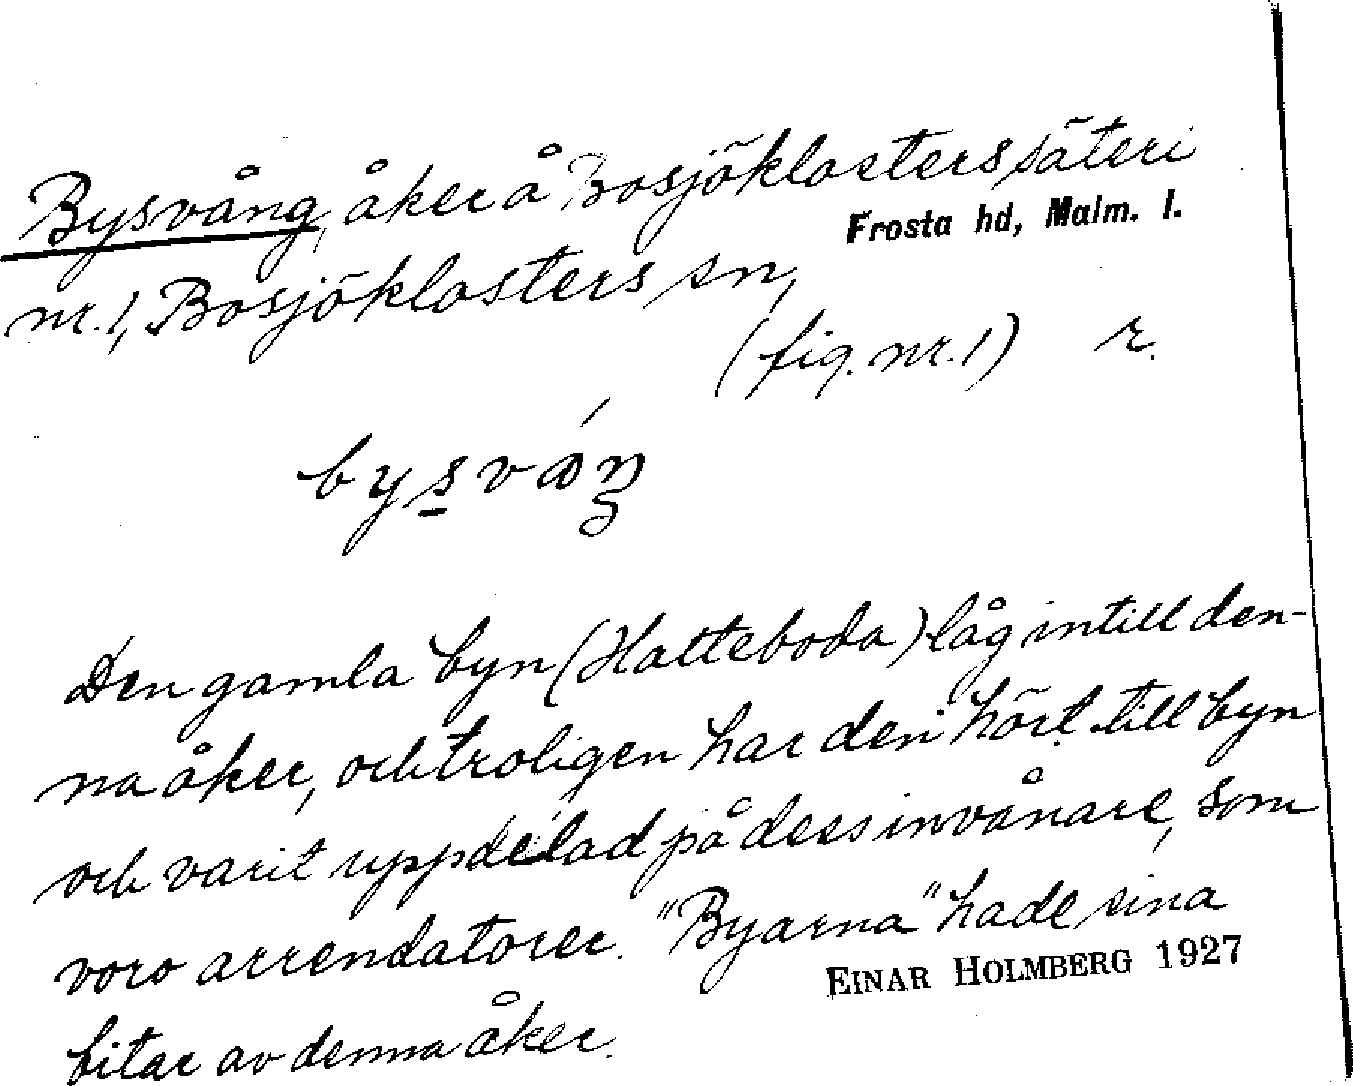 Bysvång, åker å Bosjöklosters säteri
Frosta hd, Malm. l.
nr. 1, Bosjöklosters sn,
(fig. nr. 1) r.
Den gamla byn (Hatteboda) låg intill den-
na åker, och troligen har den hört till byn
och varit uppdelad på dess invånare, som
voro arrendatorer. "Byarna" hade sina
EINAR HOLMBERG 1927
bitar av denna åker.